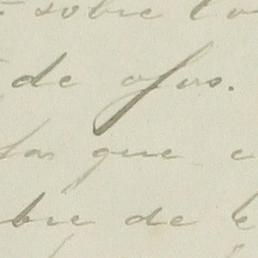 sobre lo
de ofus.
las que e
bre de le